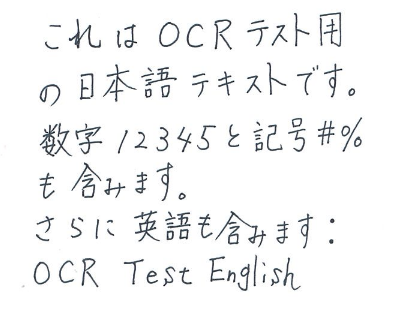 これは OCR テスト用
の日本語テキストです。
数字12345と記号#%
も含みます。
さらに英語も含みます：
OCR Test English